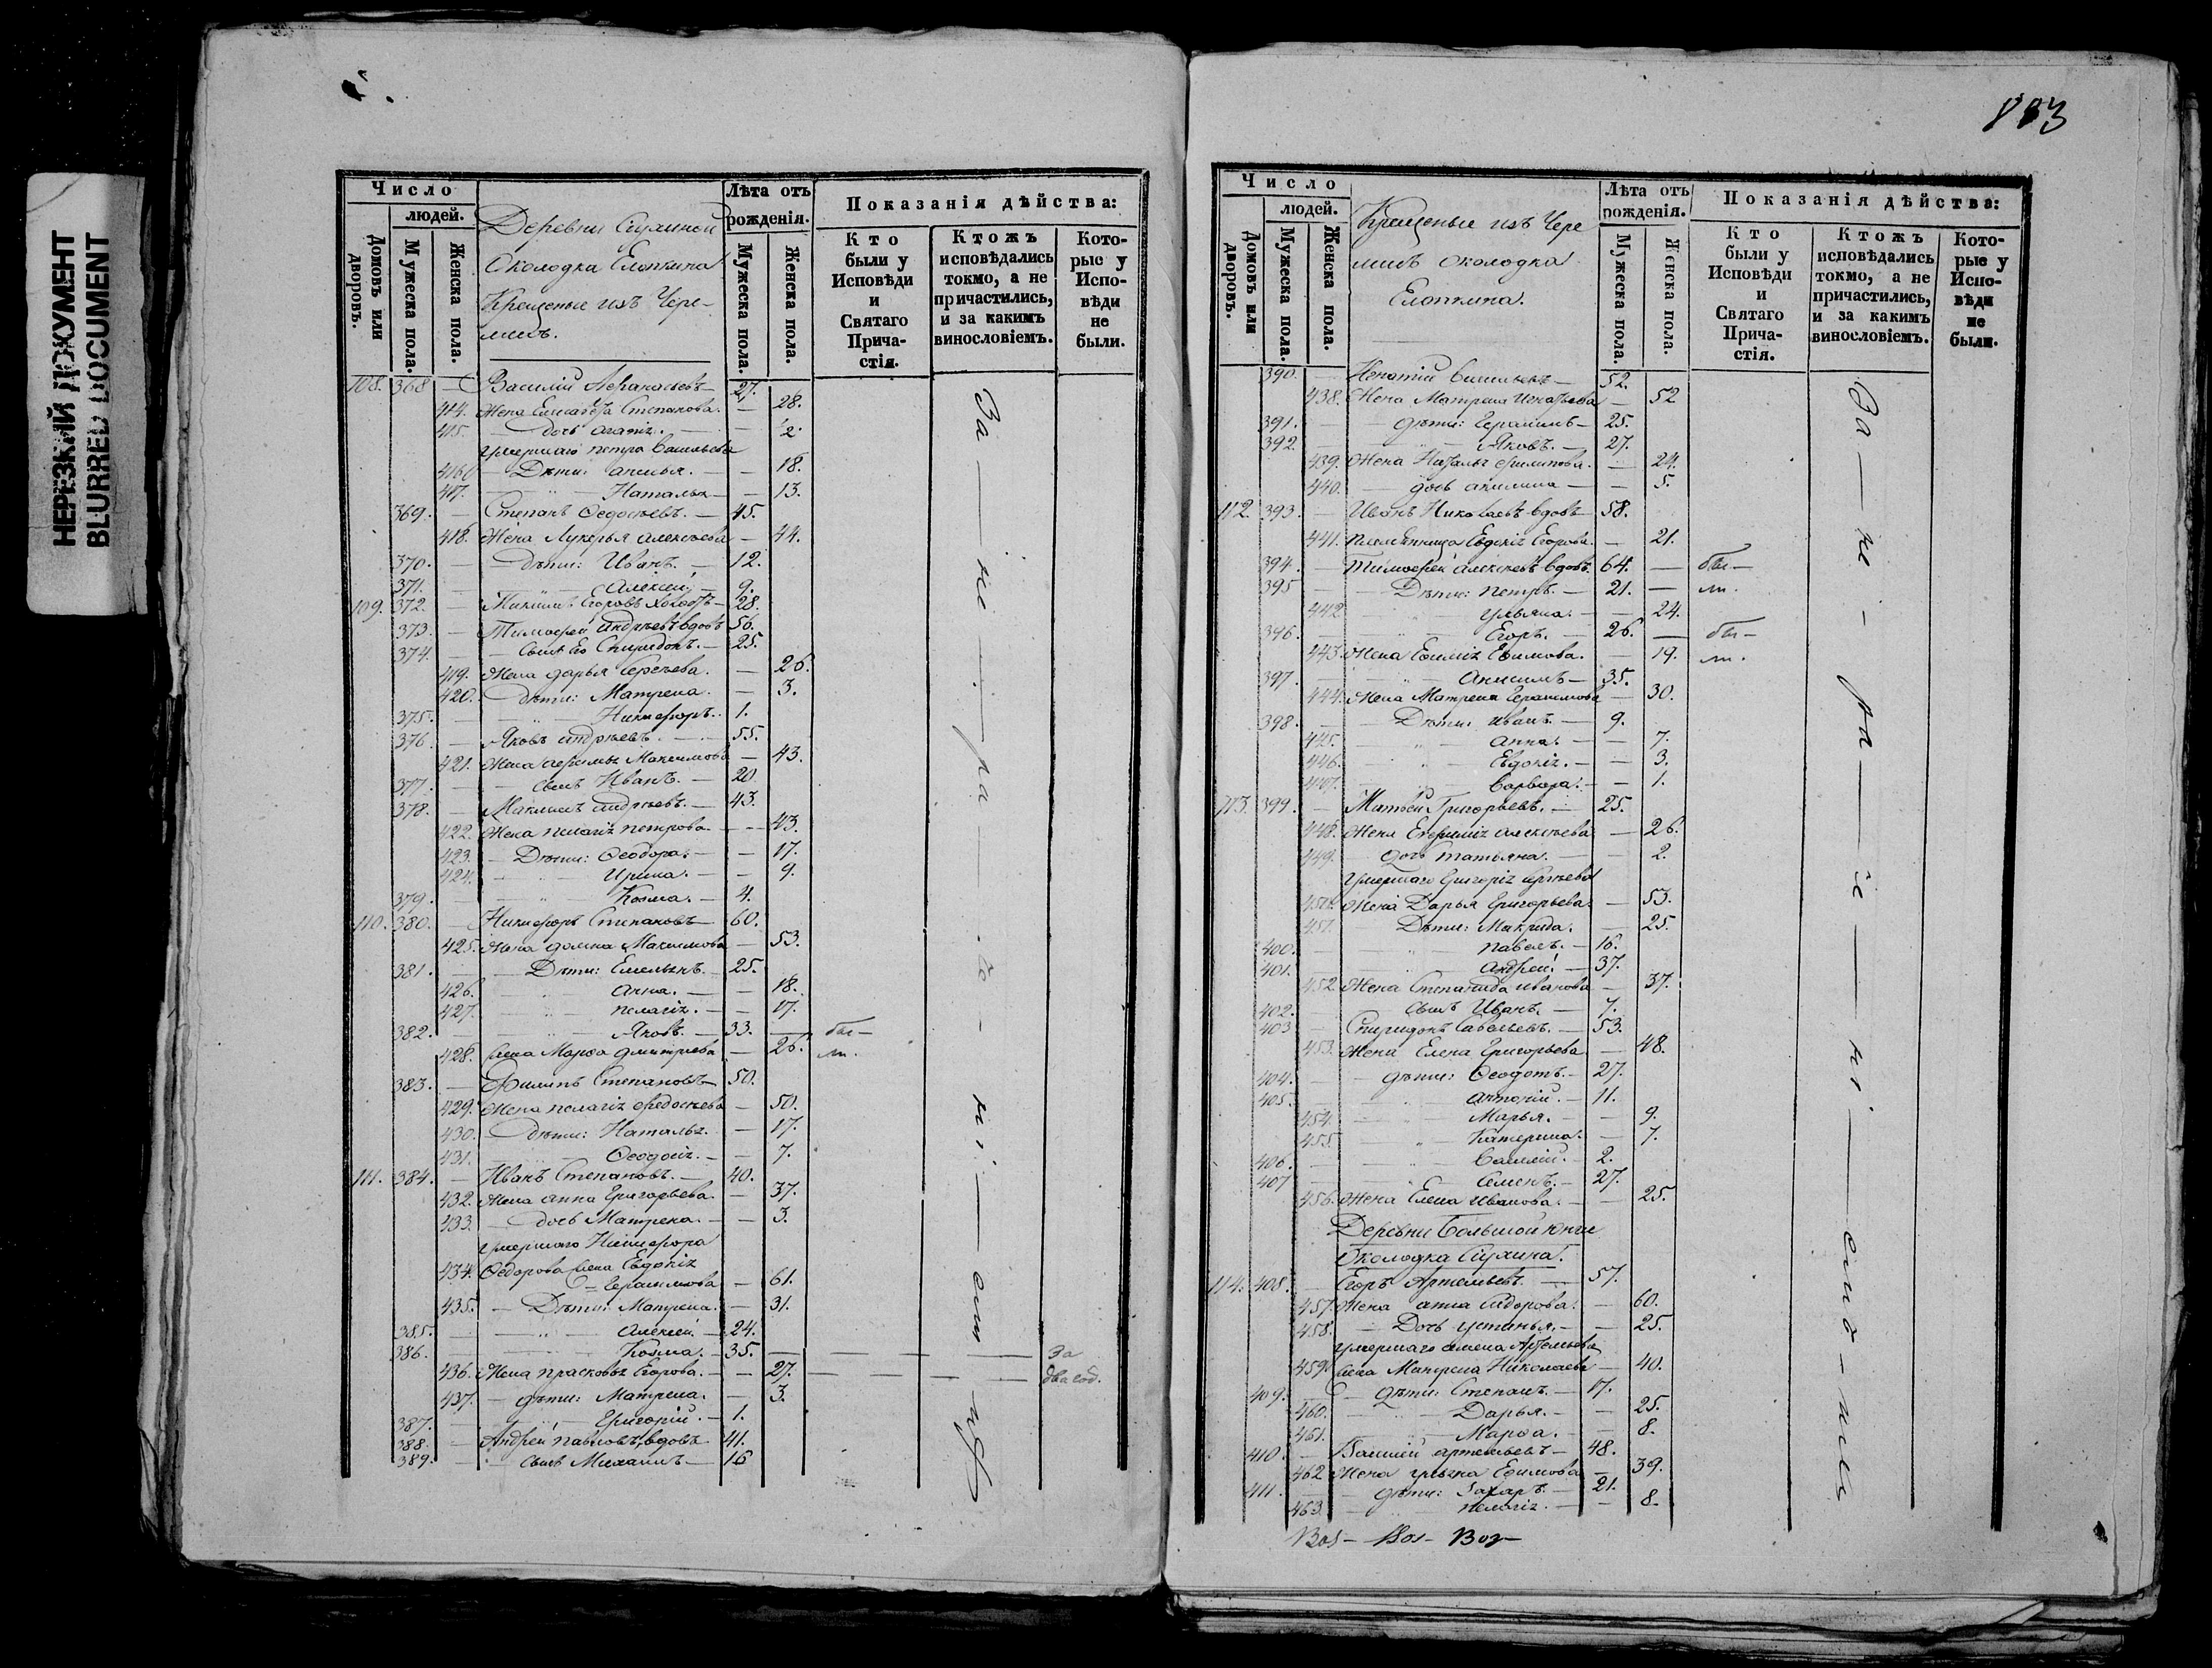 НЕРЕЗКИЙ ДОКУМЕНТ
BLURRED DOCUMENT
Число
людей.
Домовъ или дворовъ.
Мужеска пола.
Женска пола.
Деревни
Околодка Елопкина
Крещеные изъ Чере-
мисъ.
Лѣта отъ
рожденія.
Мужеска пола.
Женска пола.
Показанія дѣйства:
Кто были у Исповѣди и Святаго Прича- стія.
Ктожъ исповѣдались токмо, а не причастились, и за какимъ винословіемъ.
Кото- рые у Испо- вѣди не были.
108. 368 — Василій Афанасьевъ — 27.
414. Жена Елисавета Степанова. — 28.
415. — дочь — 2.
умершаго петра Васильева
416 — Дѣти: — 18.
417. — " — Наталья — 13.
369. — Степанъ Ѳедосѣевъ. — 45.
418. Жена Лукерья алексѣева — 44.
370. — дѣти: Иванъ. — 12.
371. — " Алексѣй — 9.
109. 372. — Егоровъ — 28.
373. — Тимофей андрѣевъ вдовъ 56.
374. — сынъ Его Спиридонъ. — 25.
419. Жена дарья Сергѣева. — 26.
420. — дѣти: Матрена. — 3.
375. — " — Никифоръ. 1.
376. — Яковъ андрѣевъ. — 55.
421. Жена Максимова — 43.
377. — сынъ Иванъ. — 20
378. — Максимъ андрѣевъ. — 43.
422. Жена пелагія петрова. — 43.
423. — Дѣти: Ѳеодора. — 17.
424. — " Ирина. — 9.
379. — " Козма. — 4.
110. 380. — Никифоръ Степановъ — 60.
425. Жена домна Максимова — 53.
381. — Дѣти: Емельянъ. — 25.
426. — " — Анна. — 18.
427. — " — пелагія. — 17.
382. — " — Яковъ. — 33. — бы —
428. жена Марѳа дмитріева — 26. ли.
383. — Филипъ Степановъ — 50.
429. Жена пелагія федосѣева — 50.
430. — дѣти: Наталья. — 17.
431. — " Ѳеодосія. — 7.
111. 384. — Иванъ Степановъ. — 40.
432. Жена анна Григорьева. — 37.
433. — дочь Матрена. — 3.
умершаго Никифора
434. Ѳедорова жена Евдокія
Герасимова — 61.
435. — Дѣти: Матрена. — 31.
385. — " — Алексѣй. — 24.
386. — " Козма. — 35. — За
436. Жена прасковья Егорова. — 27. — два год.
437. — дѣти: Матрена. — 3.
387. — " Григорій. — 1.
388. — Андрей павловъ, вдовъ 41.
389. — сынъ Михаилъ — 16
За — не — ра — — ні — ем
Число
людей.
Домовъ или дворовъ.
Мужеска пола.
Женска пола.
Крещеные изъ Чере
мисъ околодка
Елопкина.
Лѣта отъ
рожденія.
Мужеска пола.
Женска пола.
Показанія дѣйства:
Кто были у Исповѣди и Святаго Прича- стія.
Ктожъ исповѣдались токмо, а не причастились, и за какимъ винословіемъ.
Кото- рые у Испо- вѣди не были.
390. — Игнатій — 52.
438. Жена Матрена Игнатьева — 52
391. — дѣти: Герасимъ — 25.
392. — " Яковъ. — 27.
439. Жена Наталья филипова. — 24.
440. — дочь акилина — 5.
112. 393. — Иванъ Николаевъ вдовъ — 58.
441. племянница Евдокія Егорова. — 21.
394. — Тимофей алексѣевъ вдовъ. 64. — бы —
395 — Дѣти: петръ. — 21. — ли.
442 " ульяна. — 24.
396. — " Егоръ. — 26. — бы —
443. Жена Ефимова. — 19. ли.
397. — " — Анисимъ — 35.
444. Жена Матрена Герасимова — 30.
398. — Дѣти: иванъ. — 9.
445. — " — Анна. — 7.
446. — " — Евдокія. — 3.
447. — " — Варвара. — 1.
113. 399. — Матвей Григорьевъ. — 25.
448. Жена алексѣева — 26.
449. — дочь татьяна. — 2.
умершаго Григорія
450. Жена Дарья Григорьева. — 53.
451. — Дѣти: Макрида. — 25.
400. — " павелъ. — 16.
401. — " Андрей. — 37.
452. Жена Степанида иванова — 37.
402. — сынъ Иванъ. — 7.
403 — Спиридонъ Савельевъ. — 53.
453. Жена Елена Григорьева — 48.
404. — дѣти: Ѳеодотъ. — 27.
405. — " антоній. — 11.
454. — " Марья. — 9.
455. — " Катерина. — 7.
406. — " Василій. — 2.
407 — " Семенъ. — 27.
456. Жена Елена иванова. — 25.
Деревни Большой юнги
Околодка
114. 408. — Егоръ Артемьевъ. — 57.
457. Жена анна Сидорова. — 60.
458. — Дочь устинья. — 25.
умершаго семена Артемьева
459. жена Матрена Николаева — 40.
409. — дѣти: Степанъ. — 17.
460. — " Дарья. — 25.
461. — Марѳа. — 8.
410. — Василій артемьевъ — 48.
462 Жена ульяна Ефимова — 39.
411. — дѣти: Захаръ. — 21.
463. — " пелагія. — 8.
За — не — ра —